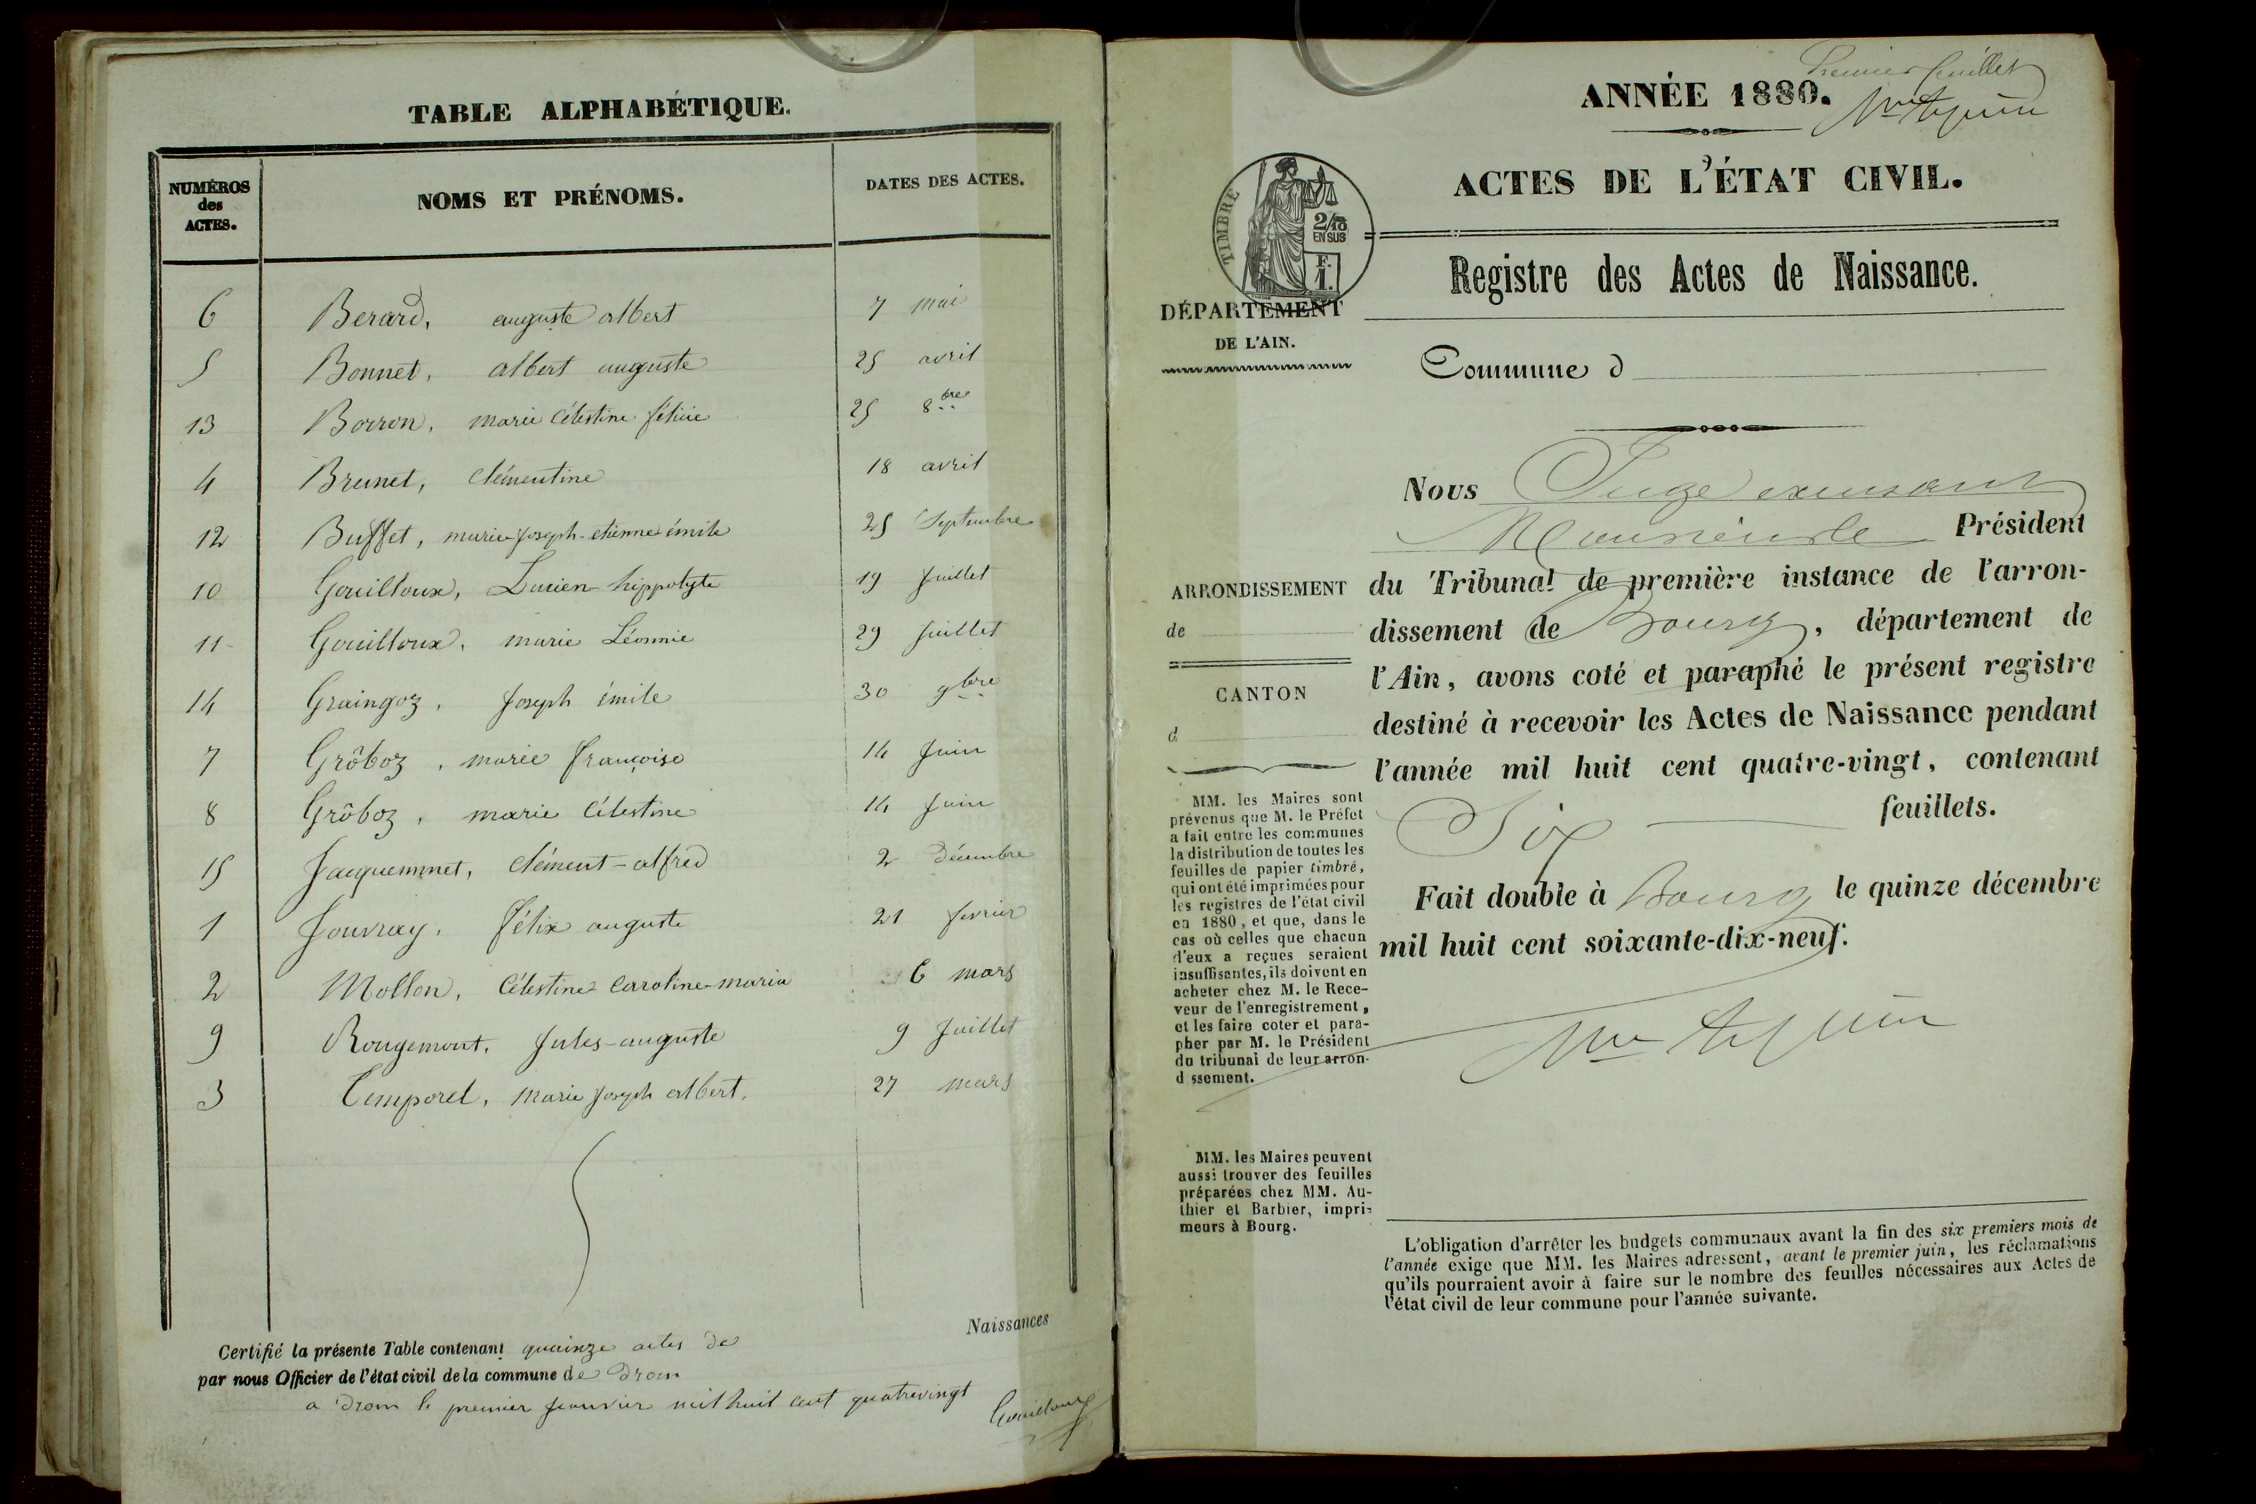 TABLE ALPHABÉTIQUE.
NUMÉROS des ACTES. NOMS ET PRÉNOMS. DATES DES ACTES.
6 Berard, auguste albert 7 mai
5 Bonnet, albert auguste 25 avril
13 Borron, marie célestine félicie 25 8bre
4 Brunet, clémentine 18 avril
12 Buffet, marie-joseph-etienne émile 25 Septembre
10 Gouilloux, Lucien-hippolyte 19 juillet
11 Gouilloux, marie Léonnie 29 juillet
14 Graingoz, joseph émile 30 9bre
7 Grôboz, marie françoise 14 juin
8 Grôboz, marie célestine 14 juin
15 Jacquemmet, clément-alfred 2 décembre
1 Jouvray, félix auguste 21 fevrier
2 Mollon, célestine caroline-maria 6 mars
9 Rougemont, jules-auguste 9 juillet
3 Temporel, marie joseph albert. 27 mars
Naissances
Certifié la présente Table contenant quainze actes de
par nous Officier de l'état civil de la commune de Drom
a Drom le premier janvier mil huit cent quatrevingt
Gouilloux
Premier feuillet
ANNÉE 1880.
ACTES DE L'ÉTAT CIVIL.
TIMBRE
2/10 EN SUS
F. 1.
Registre des Actes de Naissance.
DÉPARTEMENT
DE L'AIN.
Commune d
Nous Juge
Président
ARRONDISSEMENT
de
CANTON
d
du Tribunal de première instance de l'arron-
dissement de Bourg, département de
l'Ain, avons coté et paraphé le présent registre
destiné à recevoir les Actes de Naissance pendant
l'année mil huit cent quatre-vingt, contenant
Six feuillets.
Fait double à Bourg le quinze décembre
mil huit cent soixante-dix-neuf.
MM. les Maires sont
prévenus que M. le Préfet
a fait entre les communes
la distribution de toutes les
feuilles de papier timbré,
qui ont été imprimées pour
les registres de l'état civil
en 1880, et que, dans le
cas où celles que chacun
d'eux a reçues seraient
insuffisantes, ils doivent en
acheter chez M. le Rece-
veur de l'enregistrement,
et les faire coter et para-
pher par M. le Président
du tribunal de leur arron-
d ssement.
MM. les Maires peuvent
aussi trouver des feuilles
préparées chez MM. Au-
thier et Barbier, impri-
meurs à Bourg.
L'obligation d'arrêter les budgets communaux avant la fin des six premiers mois de
l'année exige que MM. les Maires adressent, avant le premier juin, les réclamations
qu'ils pourraient avoir à faire sur le nombre des feuilles nécessaires aux Actes de
l'état civil de leur commune pour l'année suivante.